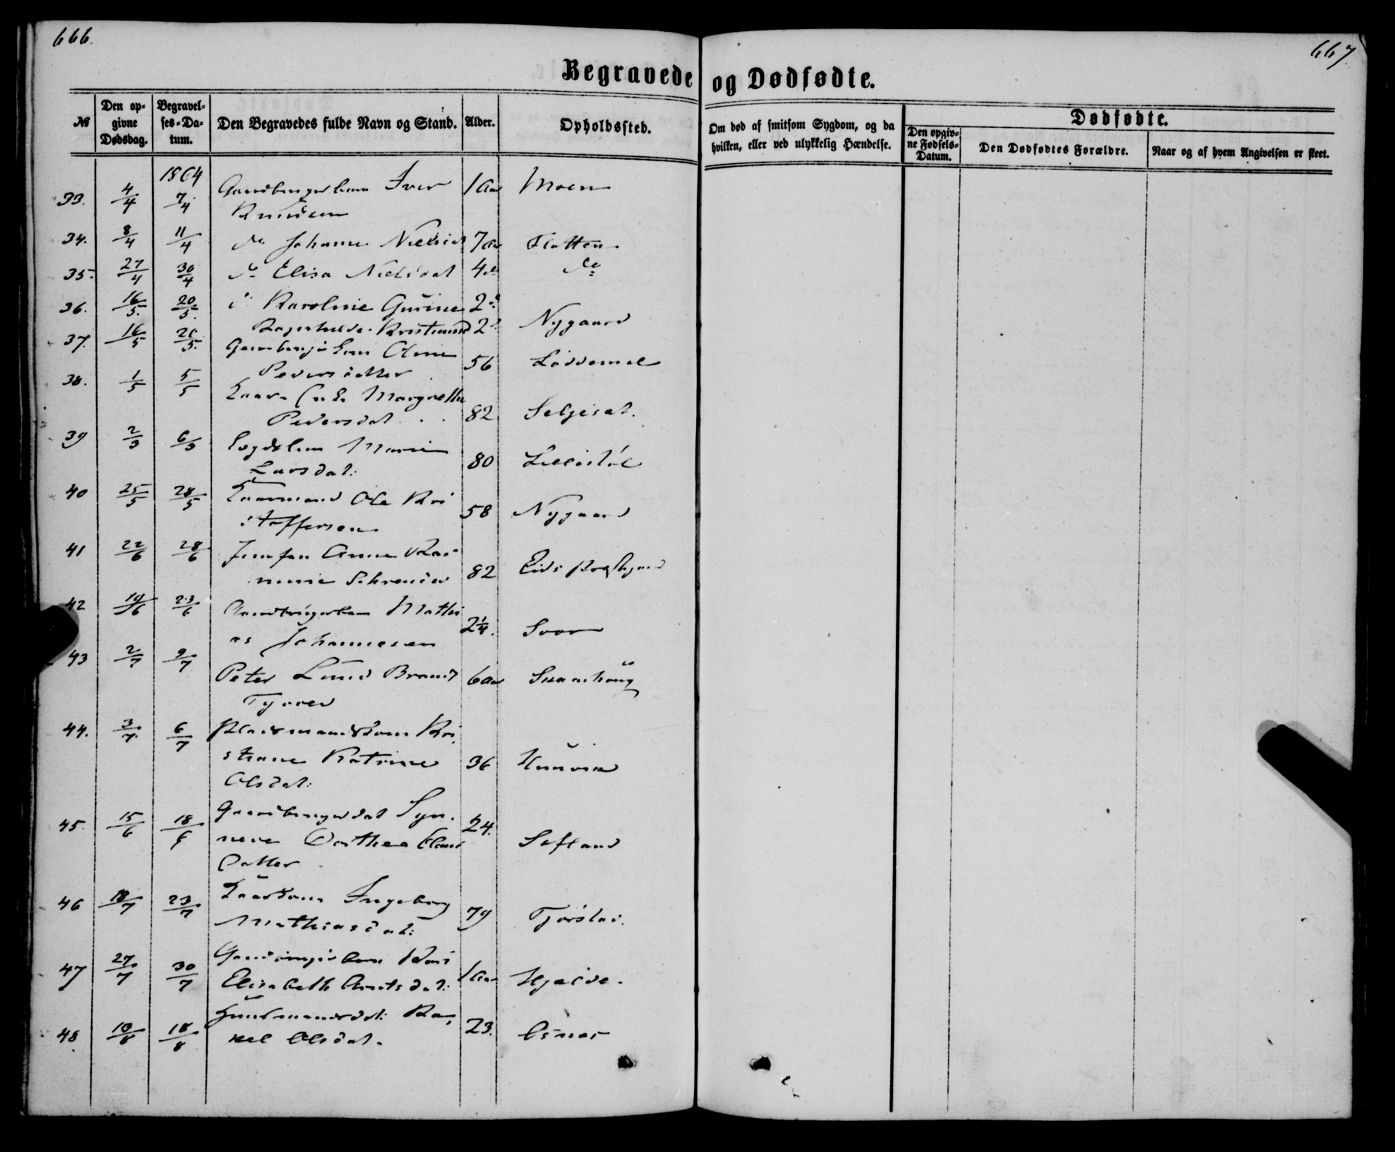 666.
667
Begravede og Dødfødte.
№
Den opgivne Dødsdag.
Begravelses-Datum.
Den Begravedes fulde Navn og Stand.
Alder.
Opholdssted.
Om død af smitsom Sygdom, og da hvilken, eller ved ulykkelig Hændelse.
Dødfødte.
Den opgivne Fødsels-Datum.
Den Dødfødtes Forældre.
Naar og af hvem Angivelsen er skeet.
1864
33. 4/4 7/4 Gaardbrugerbarn Iver 1 Aar Moen
Knudsen
34. 8/4 11/4 do Johanne Nielsdat 7 Aar Flatten
35. 27/4 30/4 do Elisa Nielsdat 4 do do
36. 16/5 20/5 Karoline Gurine 2
37. 16/5 25/5 Kristine 2 Nygaard
Oline 56 Loddemel
38. 1/5 5/5 Pedersdatter
Kaare Enke Margrethe
Pedersdat. 82 Seljeset.
39 2/3 6/3 Marie
Larsdat: 80 Lillestøl
40 25/5 28/5 Kaarmand Ole Kri
stoffersen 58 Nygaard
41 22/6 28/6 Jomfru Anne Ras
mine Schrøder 82 Eids Præstgaard
42 19/6 23/6 Gaardbrugerbarn Mathi
as Johannesen 2 1/4. Svor
43 2/7 9/7 Peter Lund Brandt 6 Aar Svanhoug
44. 3/7 6/7 Pladsmandskone Kri
stiane Katrine 36 Hunvea
Olsdat:
45. 15/6 18/6 Gaardbrugerdat Syn
neve Dorthea 24. Sefland
Datter
46 18/7 23/7 Kaarkone Ingeborg
Mathiasdat: 79 Tjørstad.
47 27/7 30/7 Gaardbrugerbarn
Elisabeth Amtsdat: 1 Aar Hjelde.
48 10/8 18/8 Huusmandsdat: Ra
kel Olsdat. 23. Osnes